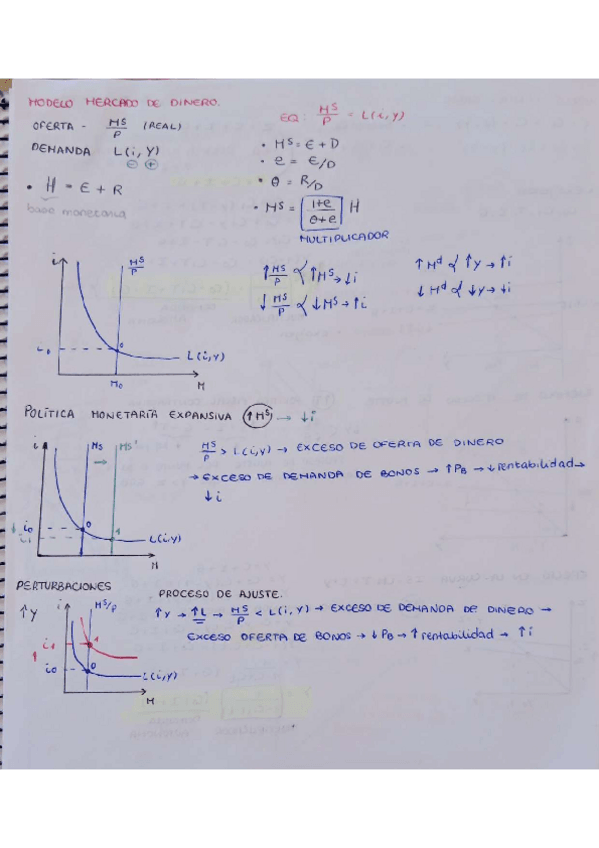 MODELO MERCADO DE DINERO.
OFERTA - MS/P (REAL)
DEMANDA L(i, Y)
⊖ ⊕
• H = E + R
base monetaria
EQ: MS/P = L(i, Y)
• MS = E + D
• e = E/D
• θ = R/D
• MS = [1+e/θ+e] H
MULTIPLICADOR
i
MS/P
i0
0
L(i,Y)
M0
M
↑MS/P ∝ ↑MS → ↓i
↓MS/P ∝ ↓MS → ↑i
↑Md ∝ ↑Y → ↑i
↓Md ∝ ↓Y → ↓i
POLÍTICA MONETARÍA EXPANSIVA (↑MS) → ↓i
i
MS
MS'
→
↓ i0
0
i1
1
L(i,Y)
M
MS/P > L(i,Y) → EXCESO DE OFERTA DE DINERO
→ EXCESO DE DEMANDA DE BONOS → ↑PB → ↓rentabilidad →
↓i
PERTURBACIONES
↑Y
i
MS/P
↑ i1
1
i0
0
L(i,Y)
M
PROCESO DE AJUSTE.
↑Y → ↑L → MS/P < L(i,Y) → EXCESO DE DEMANDA DE DINERO →
EXCESO OFERTA DE BONOS → ↓PB → ↑rentabilidad → ↑i